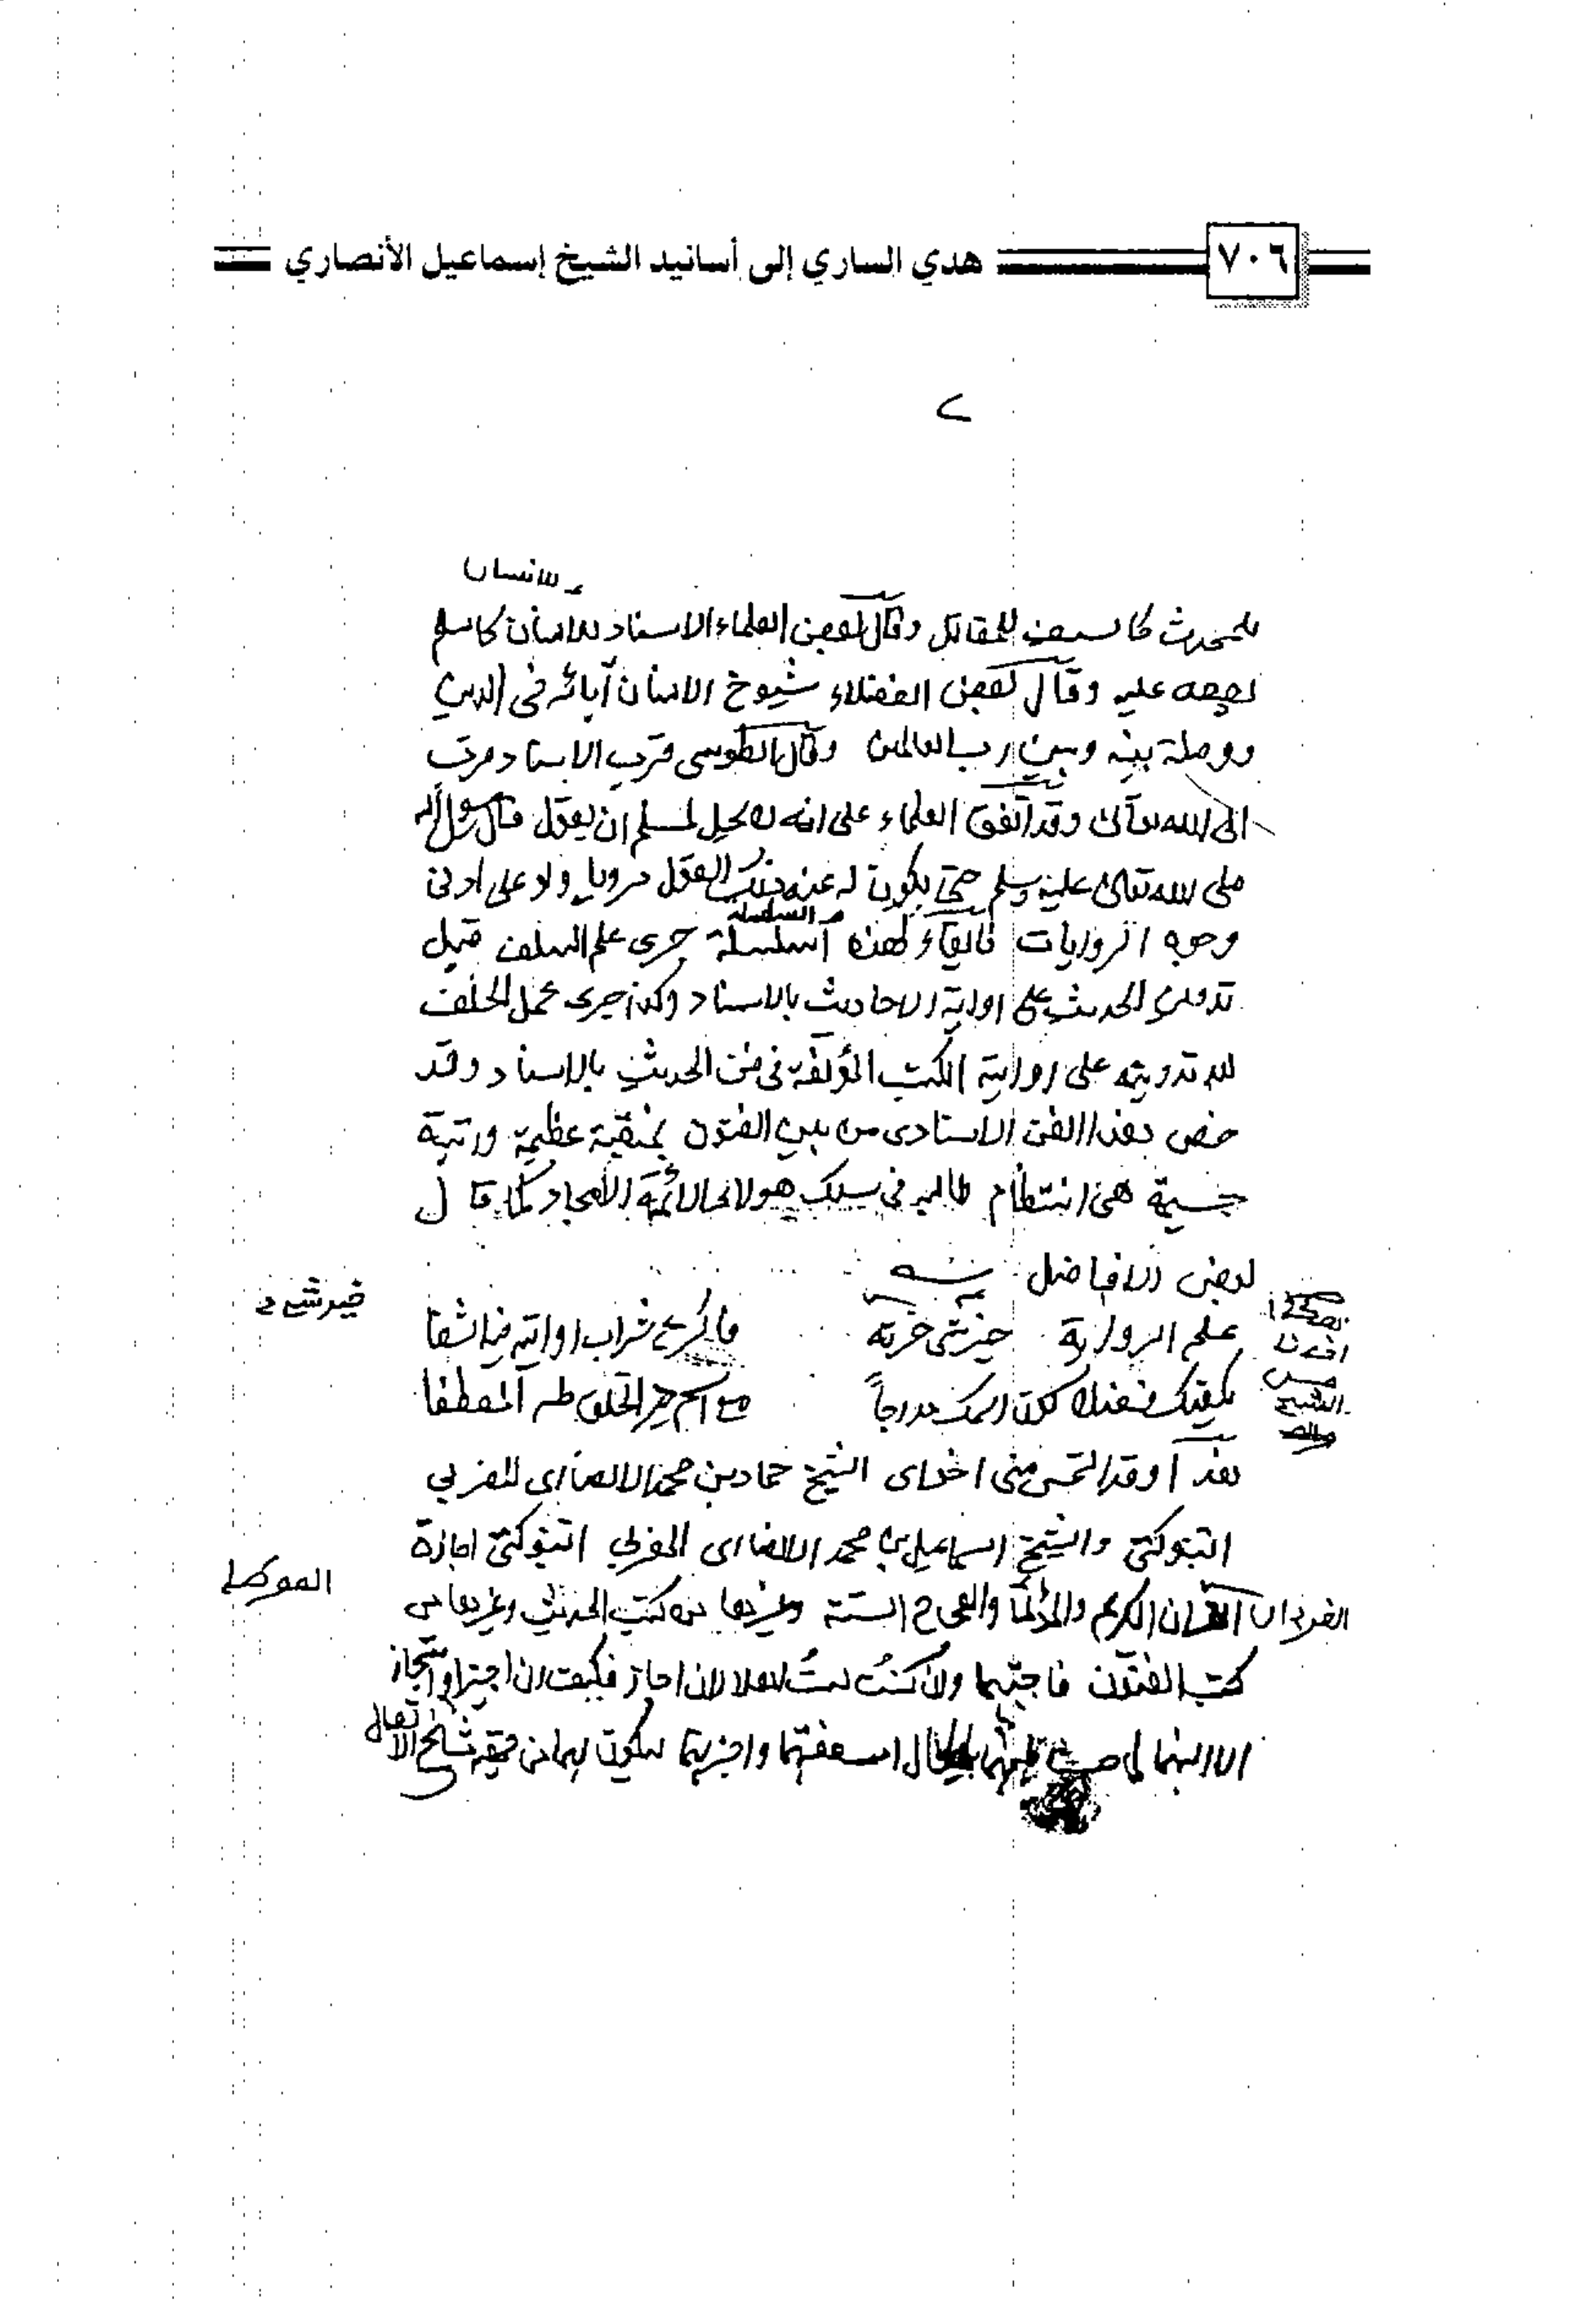 ٧٠٦ هدي الساري إلى أسانيد الشيخ إسماعيل الأنصاري
٢
للانسان
للمحدث كالسيف للمقاتل وقال بعض العلماء الاسناد للانسان كالسلم
يصعد عليه وقال بعض الفضلاء شيوخ الانسان آبائه في الدين
ووصلة بينه وبين رب العالمين وقال الطوسى قرب الاسناد قرب
الى الله تعالى وقد اتفق العلماء على انه لا يحل لمسلم ان يقول قال رسول الله
صلى الله تعالى عليه وسلم حتى يكون له عنده ذلك القول مرويا ولو على ادنى
السلسلة
وجوه الروايات فالبقاء لهذه السلسلة جرى علم السلف قبل
تدوين الحديث على رواية الاحاديث بالاسناد وكذا جرى عمل الخلف
بعد تدوينه على رواية الكتب المؤلفة فى فن الحديث بالاسناد وقد
خص بهذا الفن الاسنادى من بين الفنون بمنقبة عظيمة ورتبة
جسيمة هى انتظام طالبه فى سلك هولاء الائمة الامجاد كما قال
بعض الافاضل
علم الرواية خير شئ حزته فاكرع شراب رواية فيه الشفا
خير شئ
يكفيك فضلا كون اسمك مدرجاً مع اسم خير الخلق طه المصطفا
هكذا
اخذنا
من
الشيخ
صالح
هذا وقد التمس منى اخواى الشيخ حماد بن محمد الانصارى المغربي
التنبوكتى والشيخ اسماعيل بن محمد الانصارى المغربي التنبوكتى اجازة
الموطا
القرءان القران الكريم والموطا والصحاح الستة وغيرها من كتب الحديث وغيرها من
كتب الفنون فاجبتهما وان كنت لست اهلا لان اجاز فكيف ان اجيز واستجاز
الا انهما لما اسعفتهما واجزتهما ليكون لهما من حقه شيخ الا
تعالى